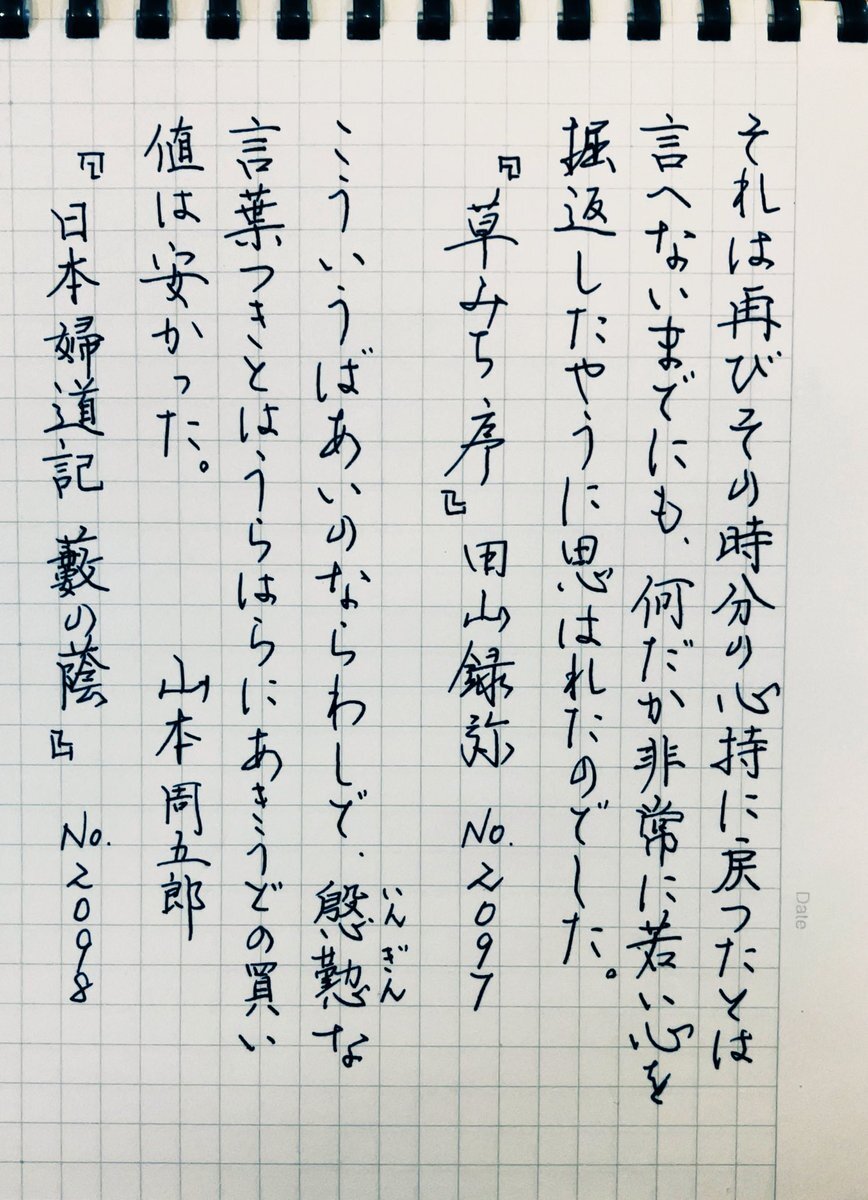 それは再びその時分の心持に戻つたとは
言へないまでにも、何だか非常に若い心を
掘返したやうに思はれたのでした。
『草みち序』 田山録弥 No.2097
こういうばあいのならわしで、慇懃な
いんぎん
言葉つきとはうらはらにあきうどの買い
値は安かった。
山本周五郎
『日本婦道記 藪の蔭』 No.2098
Date